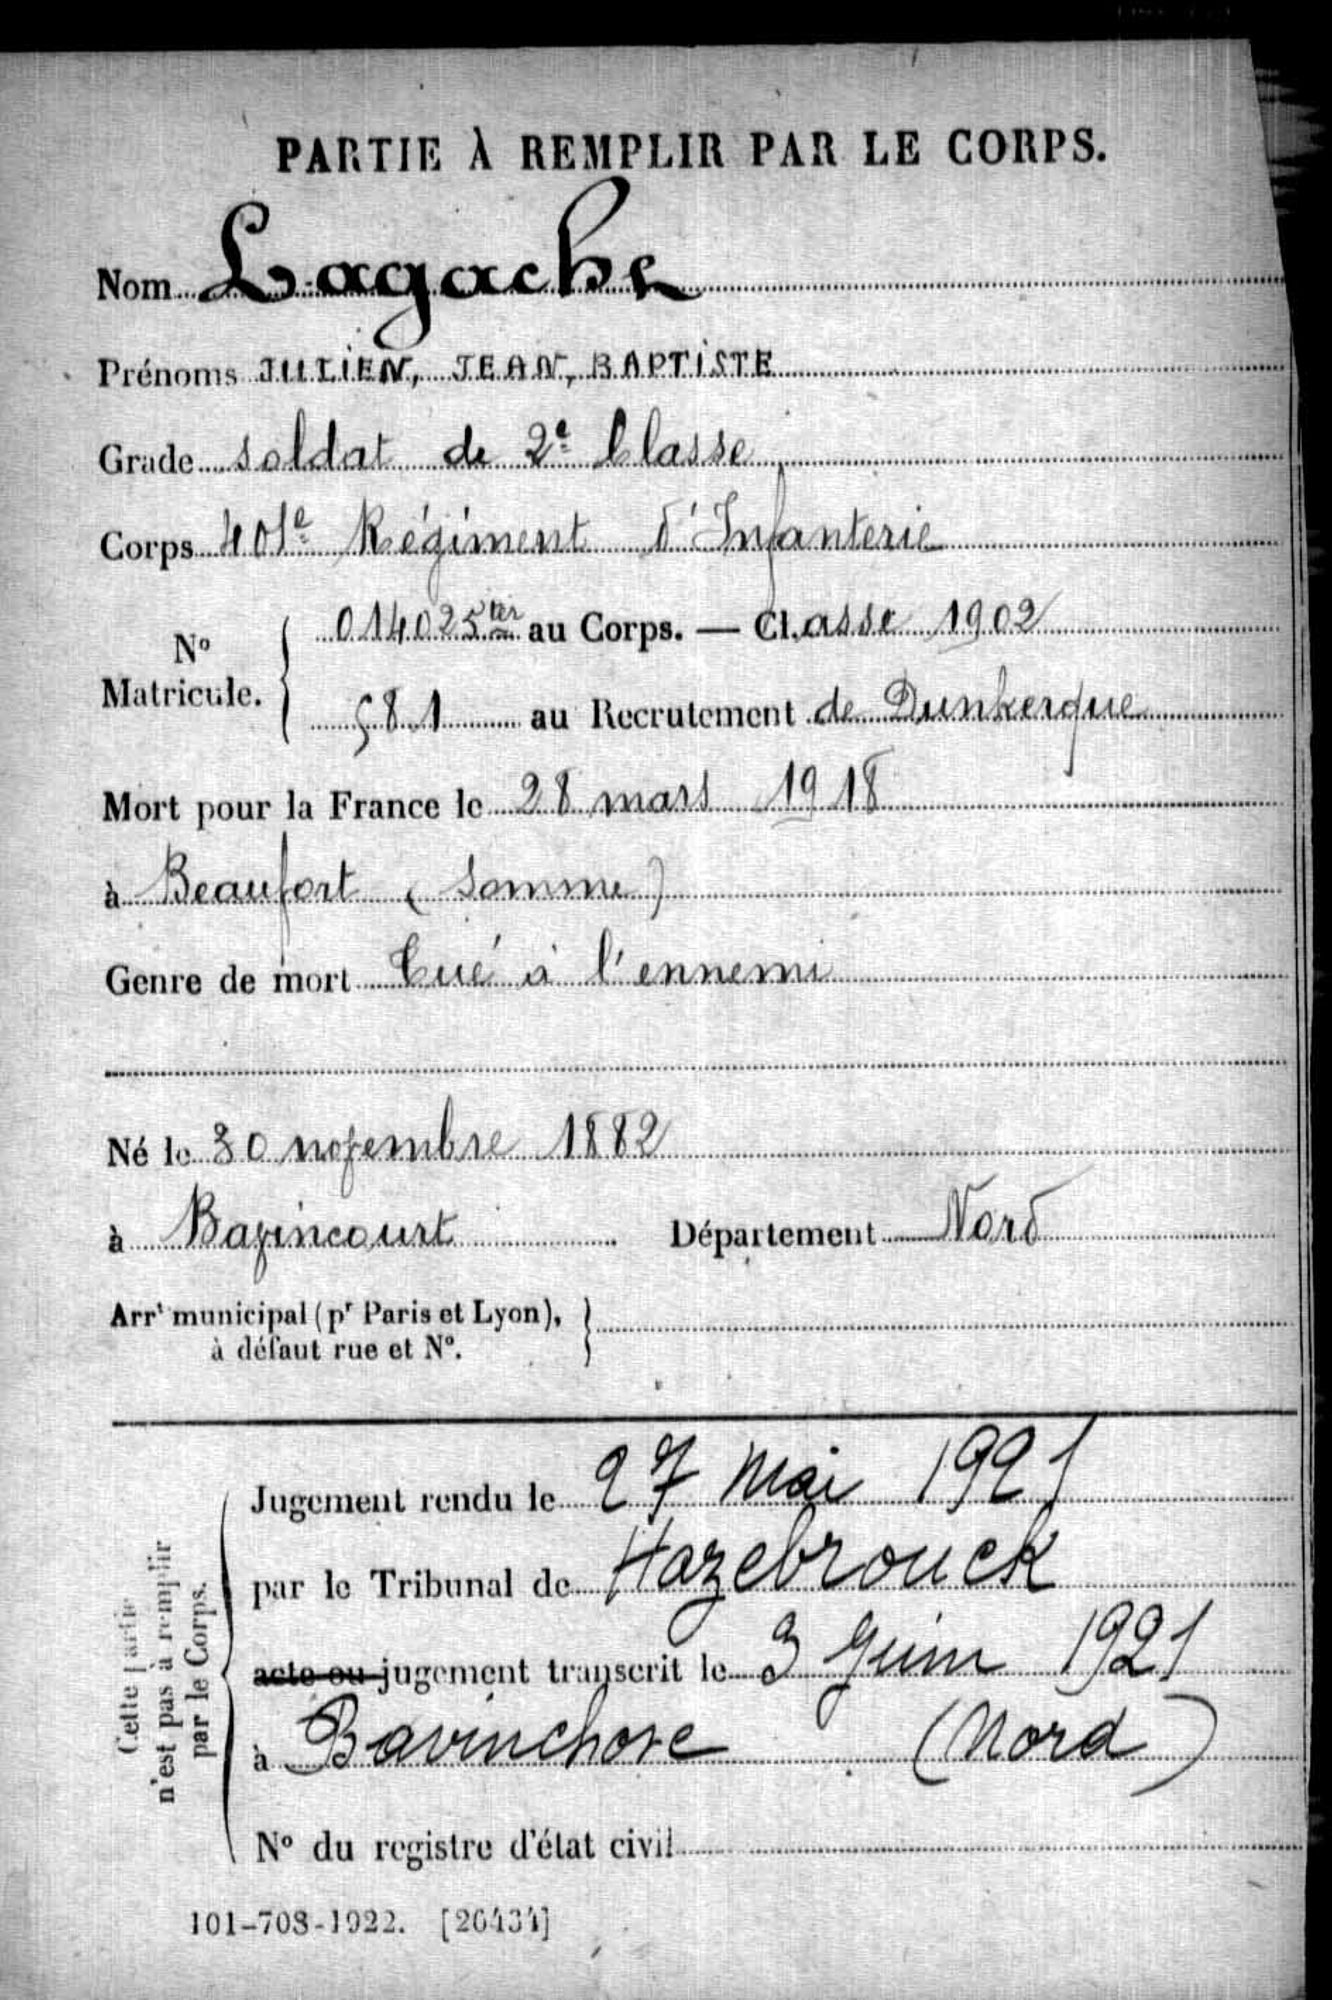 PARTIE À REMPLIR PAR LE CORPS.
Nom Lagache
Prénoms JULIEN, JEAN, BAPTISTE
Grade soldat de 2e Classe
Corps 401e Régiment d'Infanterie
No Matricule. { 014025ter au Corps. — Cl.asse 1902
581 au Recrutement de Dunkerque
Mort pour la France le 28 mars 1918
à Beaufort (Somme)
Genre de mort Tué à l'ennemi
Né le 30 novembre 1882
à Bazincourt Département Nord
Arrt municipal (pr Paris et Lyon), }
à défaut rue et No.
Cette partie
n'est pas à remplir
par le Corps.
Jugement rendu le 27 Mai 1921
par le Tribunal de Hazebrouck
acte ou jugement transcrit le 3 Juin 1921
à Bavinchove (Nord)
No du registre d'état civil
101-708-1922. [26434]